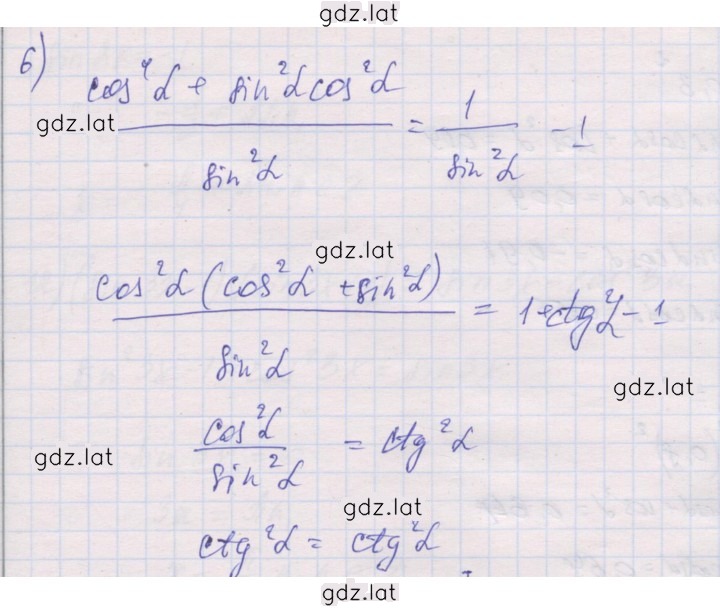 gdz.lat
6)
(cos⁴α + sin²α cos²α) / sin²α = 1 / sin²α - 1
gdz.lat
gdz.lat
(cos²α (cos²α + sin²α)) / sin²α = 1 + ctg²α - 1
gdz.lat
cos²α / sin²α = ctg²α
gdz.lat
gdz.lat
ctg²α = ctg²α
gdz.lat